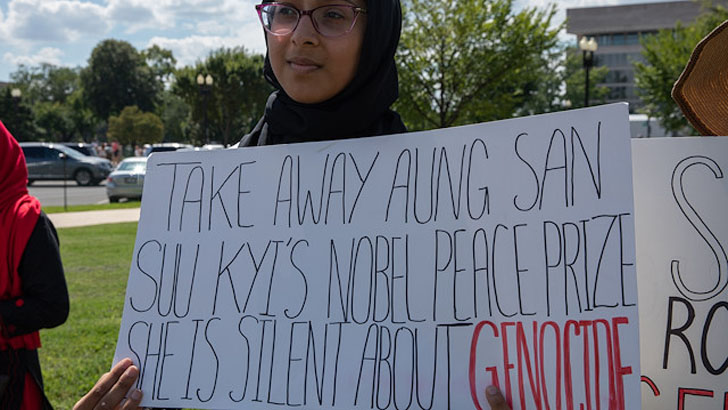 TAKE AWAY AUNG SAN
SUU KYI'S NOBEL PEACE PRIZE
SHE IS SILENT ABOUT GENOCIDE